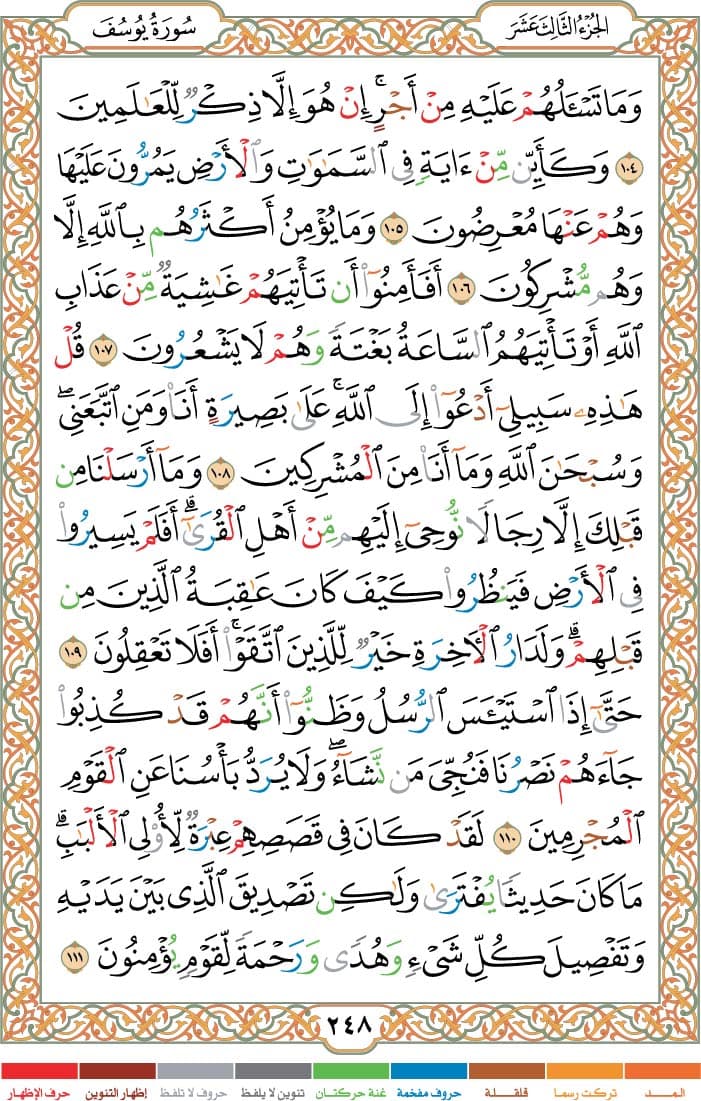 الجزء الثالث عشر
سورة يوسف
وَمَا تَسْـَٔلُهُمْ عَلَيْهِ مِنْ أَجْرٍ ۚ إِنْ هُوَ إِلَّا ذِكْرٌ لِّلْعَـٰلَمِينَ
١٠٤ وَكَأَيِّن مِّنْ ءَايَةٍ فِى ٱلسَّمَـٰوَٰتِ وَٱلْأَرْضِ يَمُرُّونَ عَلَيْهَا
وَهُمْ عَنْهَا مُعْرِضُونَ ١٠٥ وَمَا يُؤْمِنُ أَكْثَرُهُم بِٱللَّهِ إِلَّا
وَهُم مُّشْرِكُونَ ١٠٦ أَفَأَمِنُوٓا۟ أَن تَأْتِيَهُمْ غَـٰشِيَةٌ مِّنْ عَذَابِ
ٱللَّهِ أَوْ تَأْتِيَهُمُ ٱلسَّاعَةُ بَغْتَةً وَهُمْ لَا يَشْعُرُونَ ١٠٧ قُلْ
هَـٰذِهِۦ سَبِيلِىٓ أَدْعُوٓا۟ إِلَى ٱللَّهِ ۚ عَلَىٰ بَصِيرَةٍ أَنَا۠ وَمَنِ ٱتَّبَعَنِى ۖ
وَسُبْحَـٰنَ ٱللَّهِ وَمَآ أَنَا۠ مِنَ ٱلْمُشْرِكِينَ ١٠٨ وَمَآ أَرْسَلْنَا مِن
قَبْلِكَ إِلَّا رِجَالًا نُّوحِىٓ إِلَيْهِم مِّنْ أَهْلِ ٱلْقُرَىٰٓ ۗ أَفَلَمْ يَسِيرُوا۟
فِى ٱلْأَرْضِ فَيَنظُرُوا۟ كَيْفَ كَانَ عَـٰقِبَةُ ٱلَّذِينَ مِن
قَبْلِهِمْ ۗ وَلَدَارُ ٱلْـَٔاخِرَةِ خَيْرٌ لِّلَّذِينَ ٱتَّقَوْا۟ ۗ أَفَلَا تَعْقِلُونَ ١٠٩
حَتَّىٰٓ إِذَا ٱسْتَيْـَٔسَ ٱلرُّسُلُ وَظَنُّوٓا۟ أَنَّهُمْ قَدْ كُذِبُوا۟
جَآءَهُمْ نَصْرُنَا فَنُجِّىَ مَن نَّشَآءُ ۖ وَلَا يُرَدُّ بَأْسُنَا عَنِ ٱلْقَوْمِ
ٱلْمُجْرِمِينَ ١١٠ لَقَدْ كَانَ فِى قَصَصِهِمْ عِبْرَةٌ لِّأُو۟لِى ٱلْأَلْبَـٰبِ ۗ
مَا كَانَ حَدِيثًا يُفْتَرَىٰ وَلَـٰكِن تَصْدِيقَ ٱلَّذِى بَيْنَ يَدَيْهِ
وَتَفْصِيلَ كُلِّ شَىْءٍ وَهُدًى وَرَحْمَةً لِّقَوْمٍ يُؤْمِنُونَ ١١١
٢٤٨
المـــد
تركت رسما
قلقـلة
حروف مفخمة
غنة حركتان
تنوين لا يلفظ
حروف لا تلفظ
إظهار التنوين
حرف الإظهار